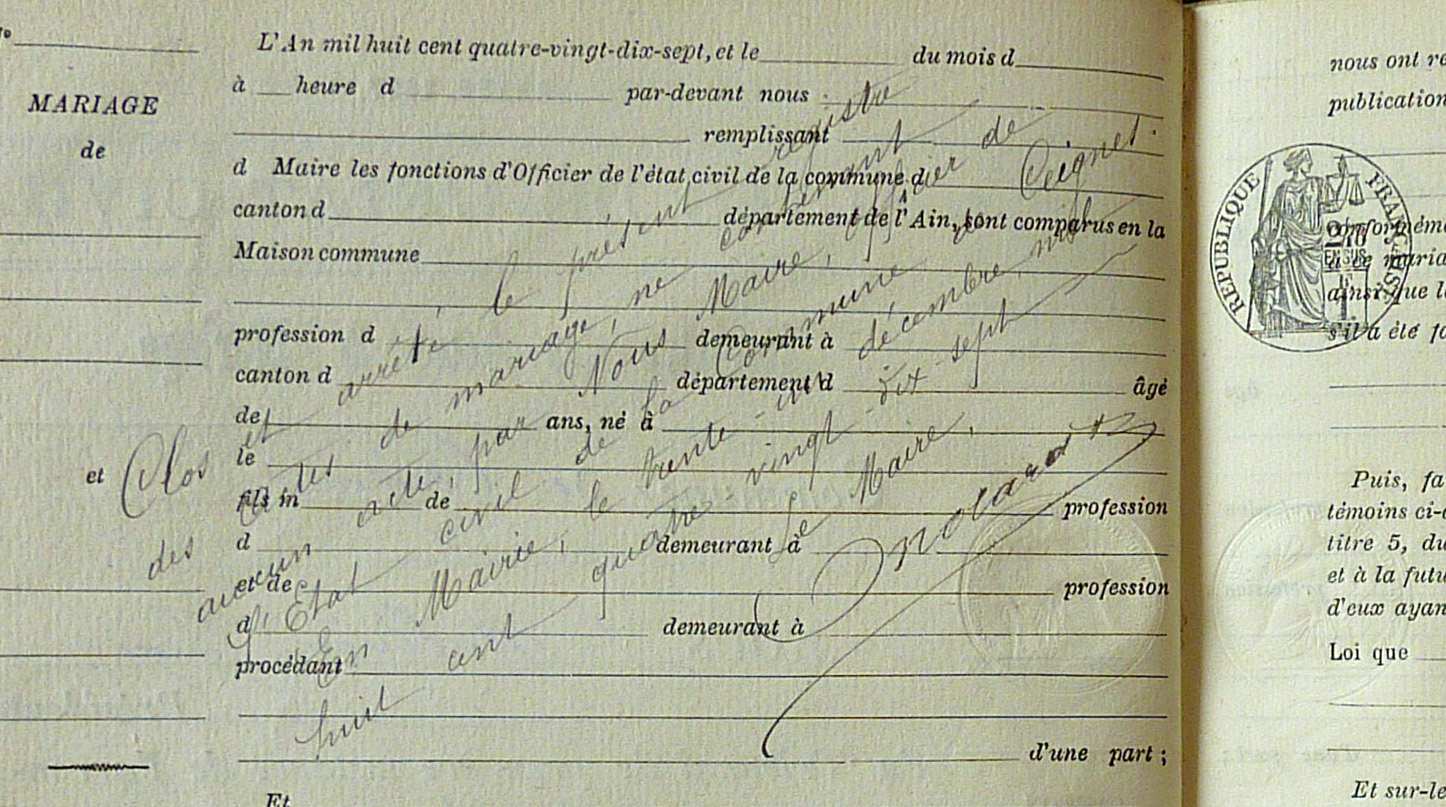 L'An mil huit cent quatre-vingt-dix-sept, et le du mois d
à heure d par-devant nous
remplissant
d Maire les fonctions d'Officier de l'état civil de la commune d
canton d département de l'Ain, sont comparus en la
Maison commune
profession d demeurant à
canton d département d âgé
de ans, né à
le
fils m de profession
d demeurant à
et de profession
d demeurant à
procédant
d'une part ;
Et
MARIAGE
de
et
Clos et arrêté le présent registre
des actes de mariage, ne contenant
aucun acte, par Nous Maire, officier de
l'État civil de la Commune de Ceignes.
En Mairie, le trente-un décembre mil
huit cent quatre-vingt-dix-sept
Le Maire,
nous ont re
publication
conformém
ainsi que l
s'il a été fo
Puis, fa
témoins ci-d
titre 5, du
et à la futu
d'eux ayan
Loi que
Et sur-le
RÉPUBLIQUE FRANÇAISE